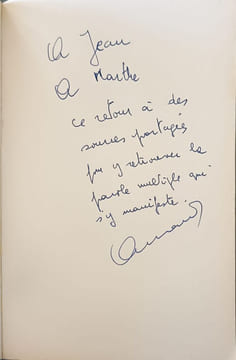 A Jean
A Marthe
ce retour à des
sources partagées
pour y retrouver la
parole multiple qui
s'y manifeste.